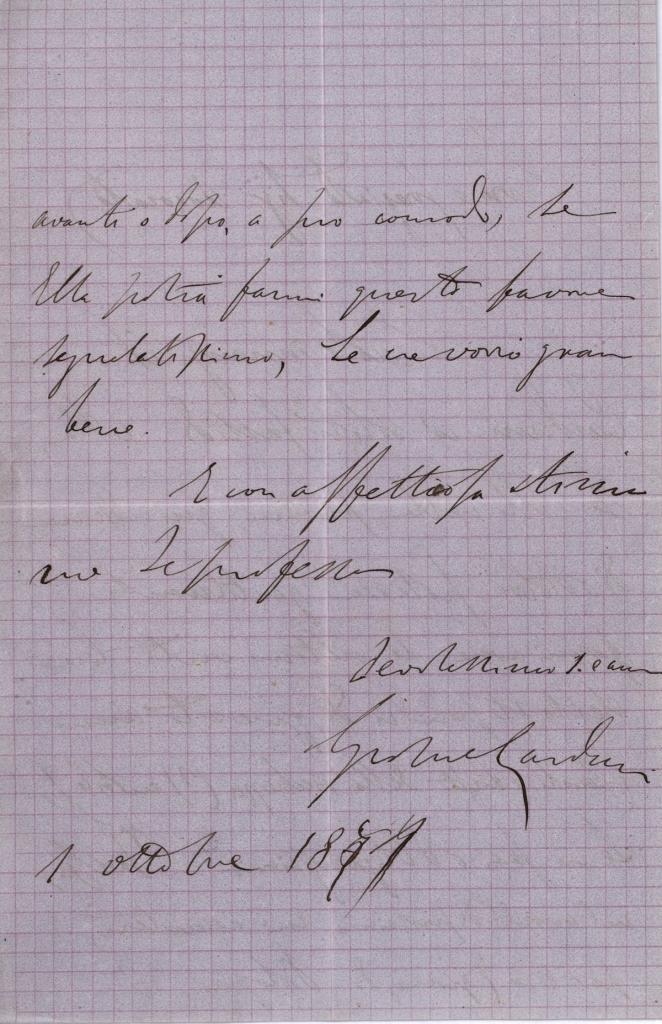 avanti o dopo, a suo comodo, se
Ella potrà farmi questo favore
segnalatissimo, Le ne vorrò gran
bene.
E con affettuosa stima
me Le professo
devotissimo
Giosue Carducci
1 ottobre 1877